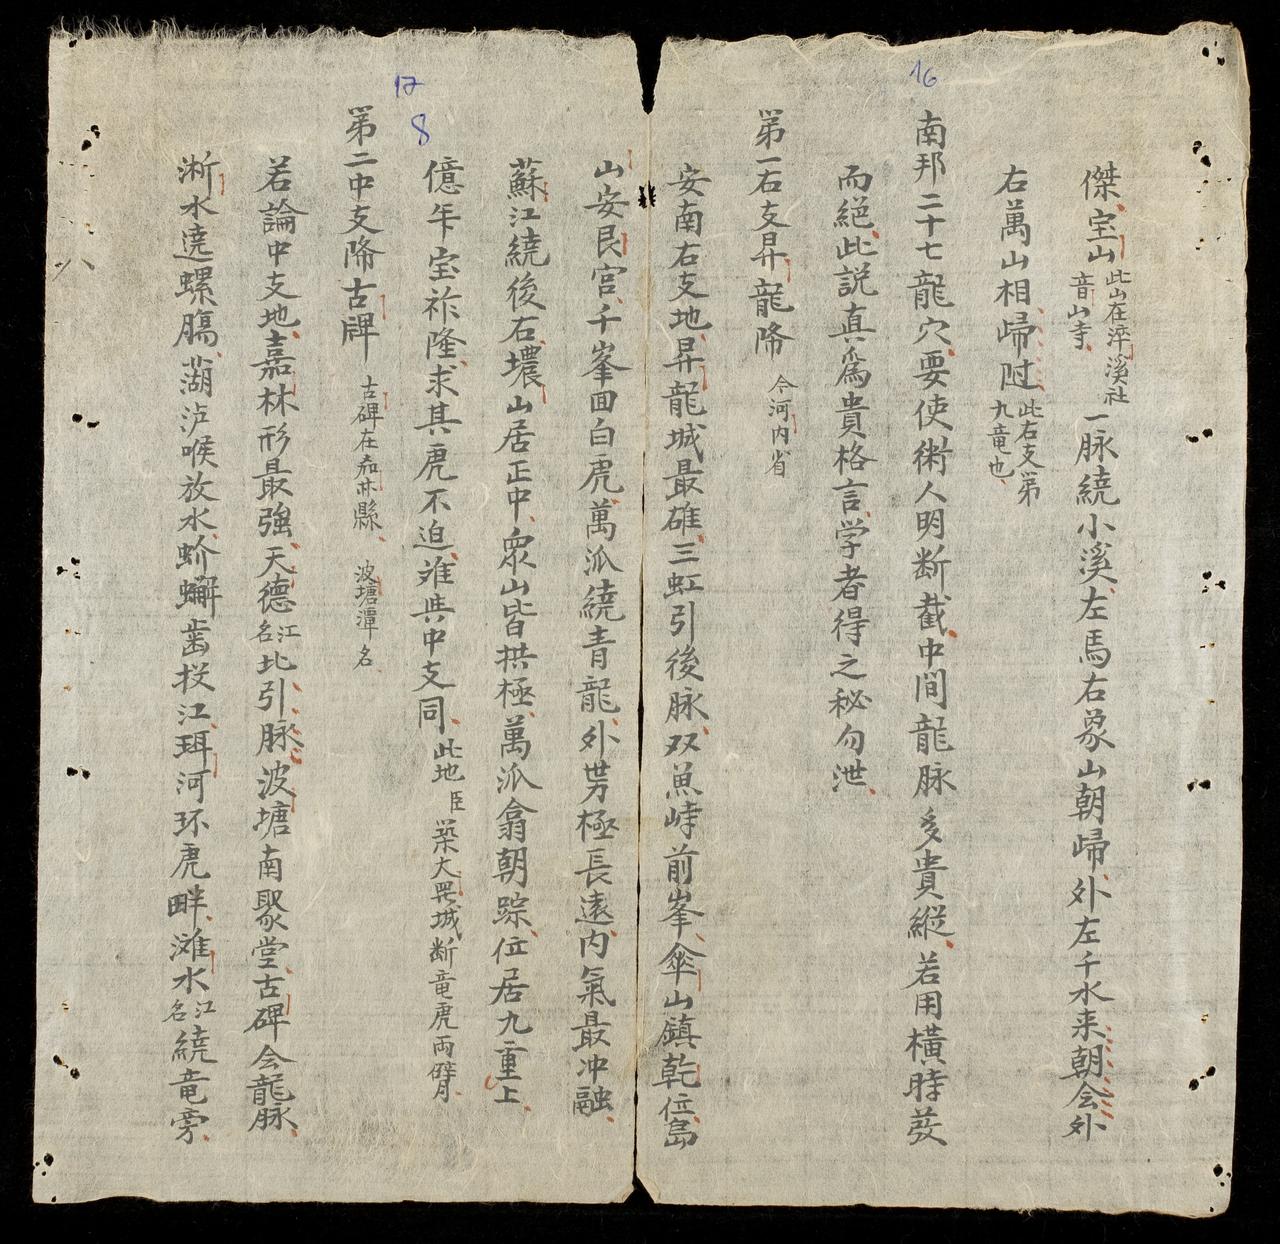 16
傑宝山此山在滓溪社音山寺一脉繞小溪左馬右象山朝歸外左千水来朝会外
右萬山相歸此右支第九竜也
南邦二十七龍穴要使術人明断截中間龍脉多貴縱若用橫時發
而絕此説真爲貴格言学者得之秘勿泄
第一右支昇龍降 今河内省
安南右支地昇龍城最雄三虹引後脉双魚峙前峯傘山鎮乾位島
山安艮宫千峯回白虎萬派繞青龍外势極長遠内氣最冲融
蘇江繞後右壤山居正中衆山皆拱極萬派翕朝踪位居九重上
17
8
億年宝祚隆求其虎不迫难與中支同此地臣築大罗城断竜虎兩臂
第二中支降古碑 古碑在茄林縣 波塘潭名
若論中支地嘉林形最強天德江名北引脉波塘南聚堂古碑会龍脉
淅水遶螺腸葫泸喉放水蚧蠏歯投江珥河环虎畔滩水江名繞竜旁
八